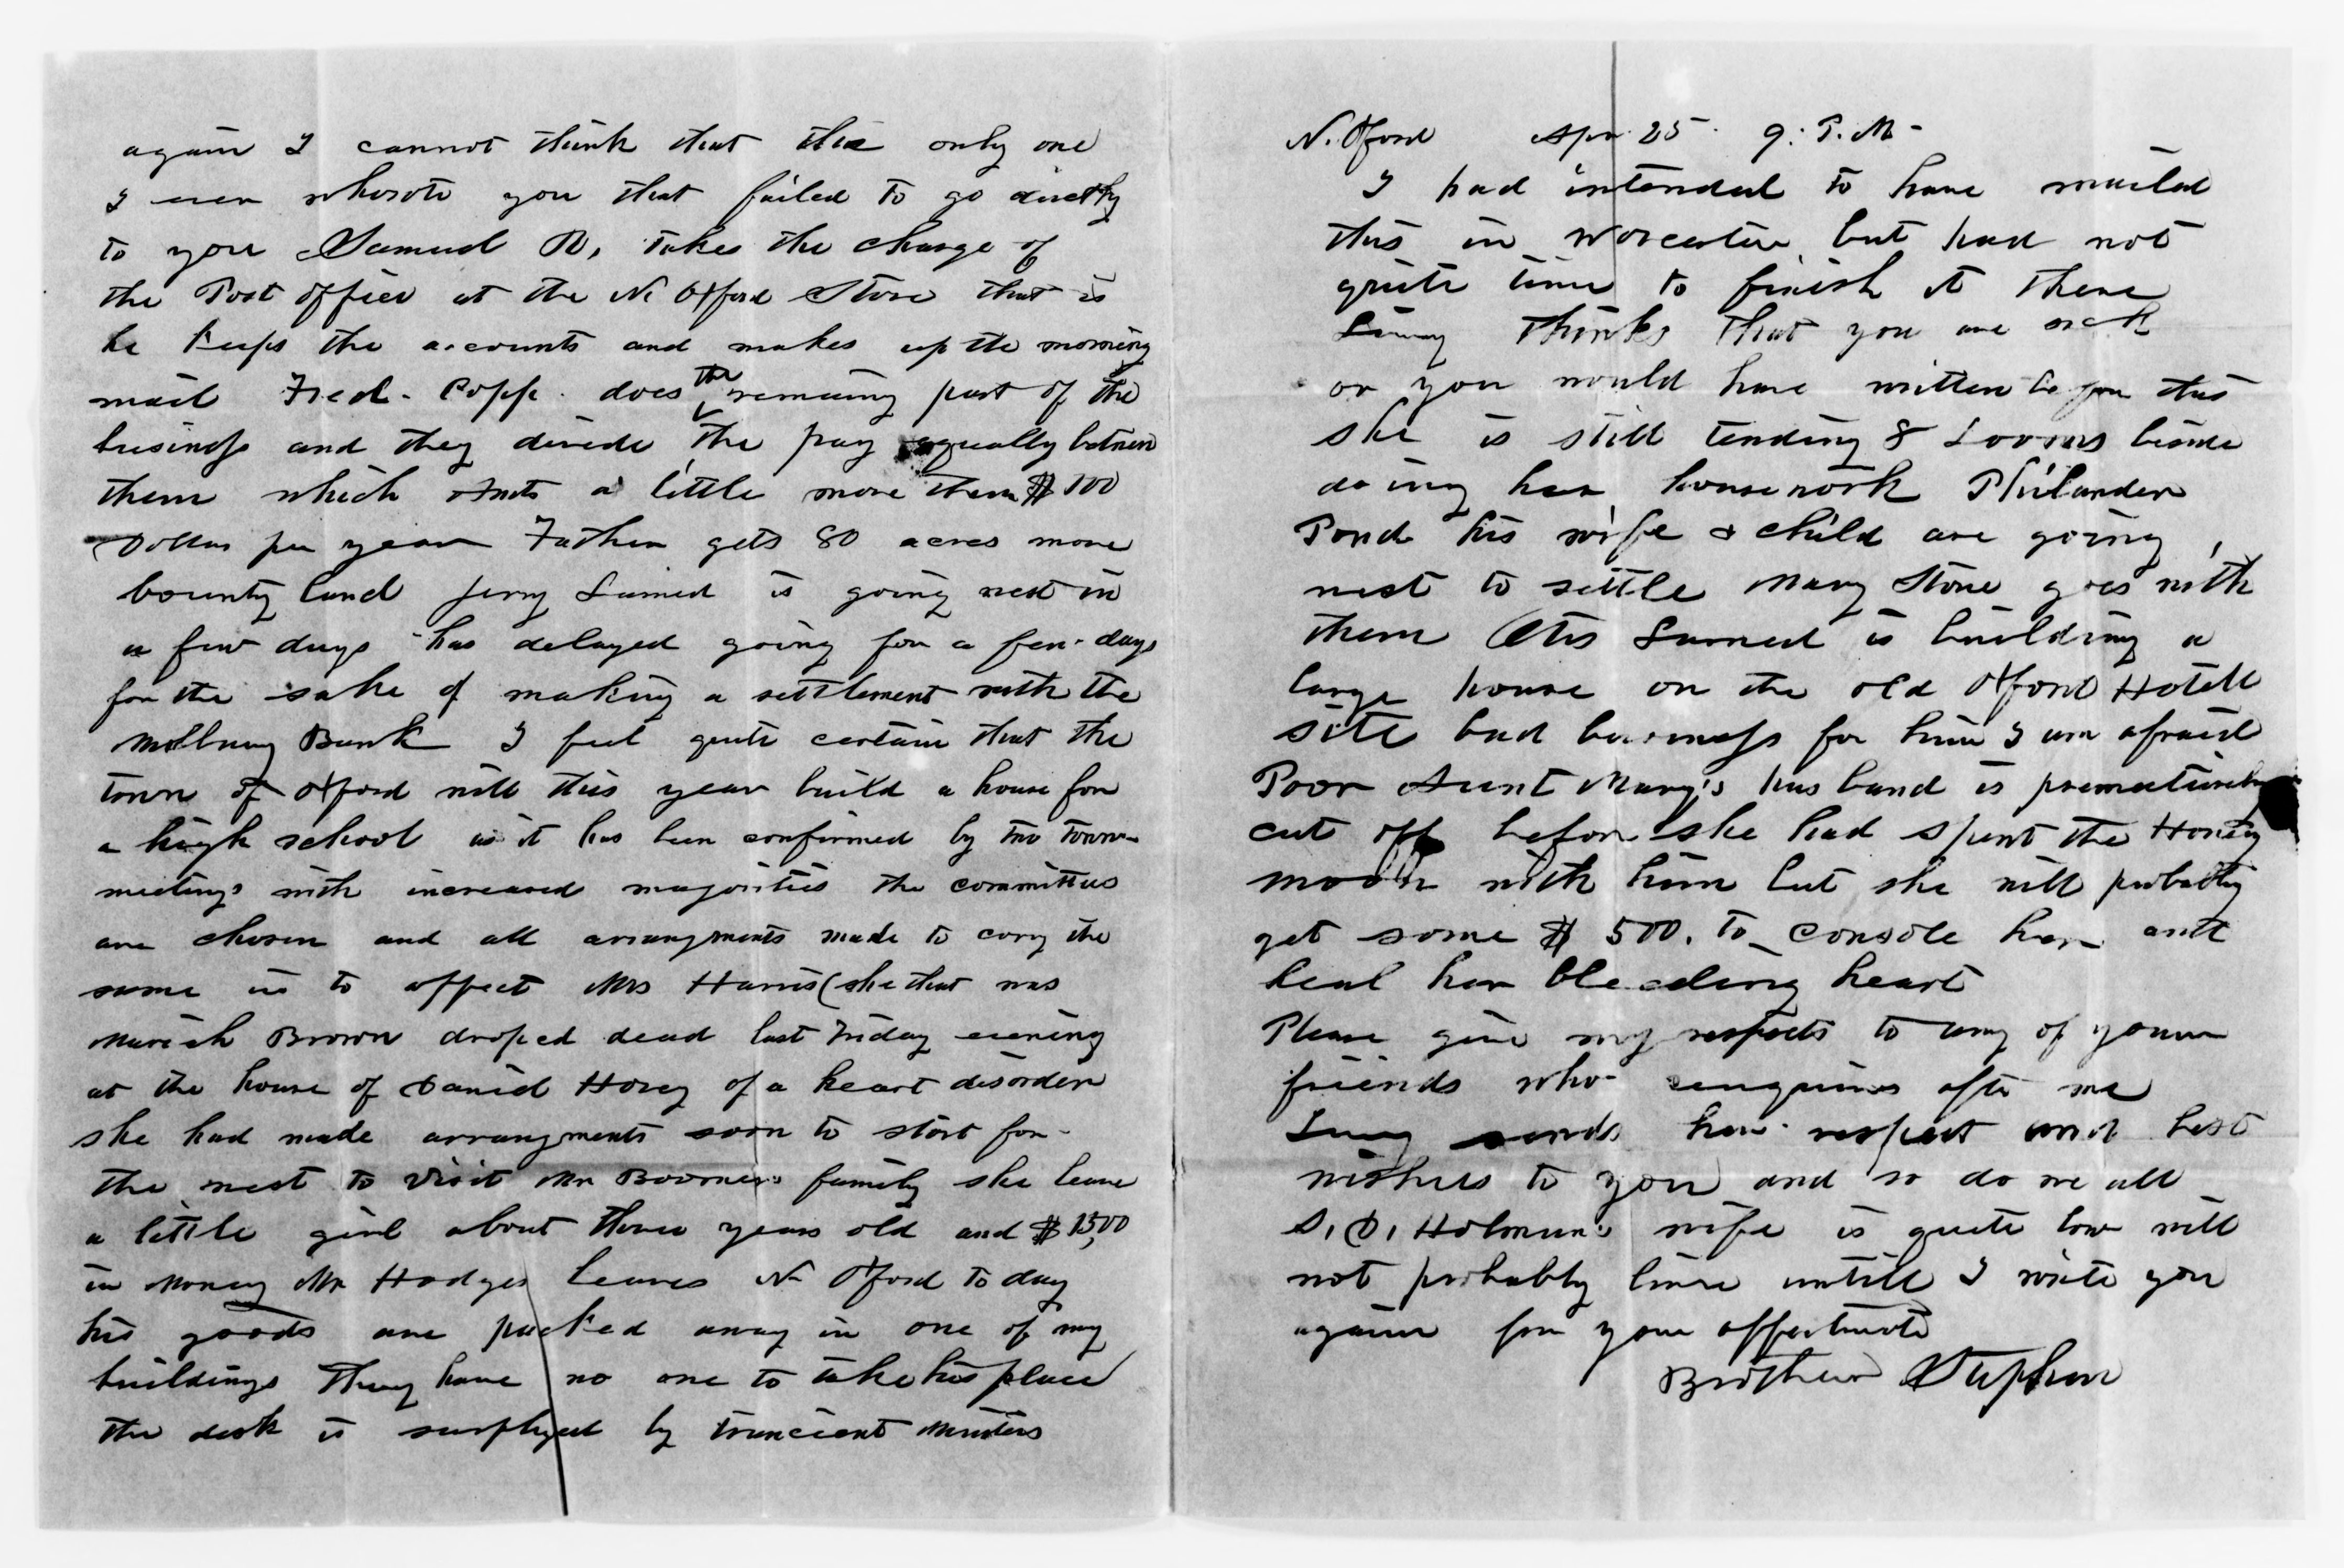 again I cannot think that this only one
I ever whrote you that failed to go directly
to you Samuel R, takes the charge of
the Post office at the N. Oxford Store that is
he keeps the accounts and makes up the morning
mail Fred. Copp. does the remaing part of the
business and they devide the pay equally between
them which a little more than $ 100
Dollar per year Father gets 80 acres more
bounty land Jerry Larned is going west in
a few days has delayed going for a few days
for the sake of making a settlement with the
Millbury Bank I feel quite certain that the
town of Oxford will this year build a house for
a high school as it has been confirmed by two town
meetings with increased majorities the committees
are chosen and all arrangments made to cary the
same in to affect Mrs Harris (she that was
Mariah Brown droped dead last Friday evening
at the house of Daniel Hovey of a heart disorder
she had made arrangments soon to start for
the west to visit Mr family she leave
a little girl about three years old and $ 1500
in money Mr Hodges leaves N Oxford to day
his goods are packed away in one of my
buildings They have no one to take his place
the desk is surplyed by trancient Ministers
N. Oxford Apr. 25. 9. P. M-
I had intended to have mailed
this in Worcester but had not
quite time to finish it there
thinks that you are sick
or you would have written before this
she is still tending 8 Looms beside
doing her housework Philander
Pond his wife & child are going
west to settle Mary Stone goes with
them Otis Larned is building a
large house on the old Oxford Hotell
site bad business for him I am afraid
Poor Aunt Mary's husband is prematurely
cut off before she had spent the Honey
moon with him but she will probably
get some $ 500. to console her and
heal her bleeding heart
Please give my respects to any of your
friends who enquires after me
sends her respect and best
wishes to you and so do we all
S. D. Holman's wife is quite low will
not probably live untill I write you
again from your affectinate
Brother Stephen